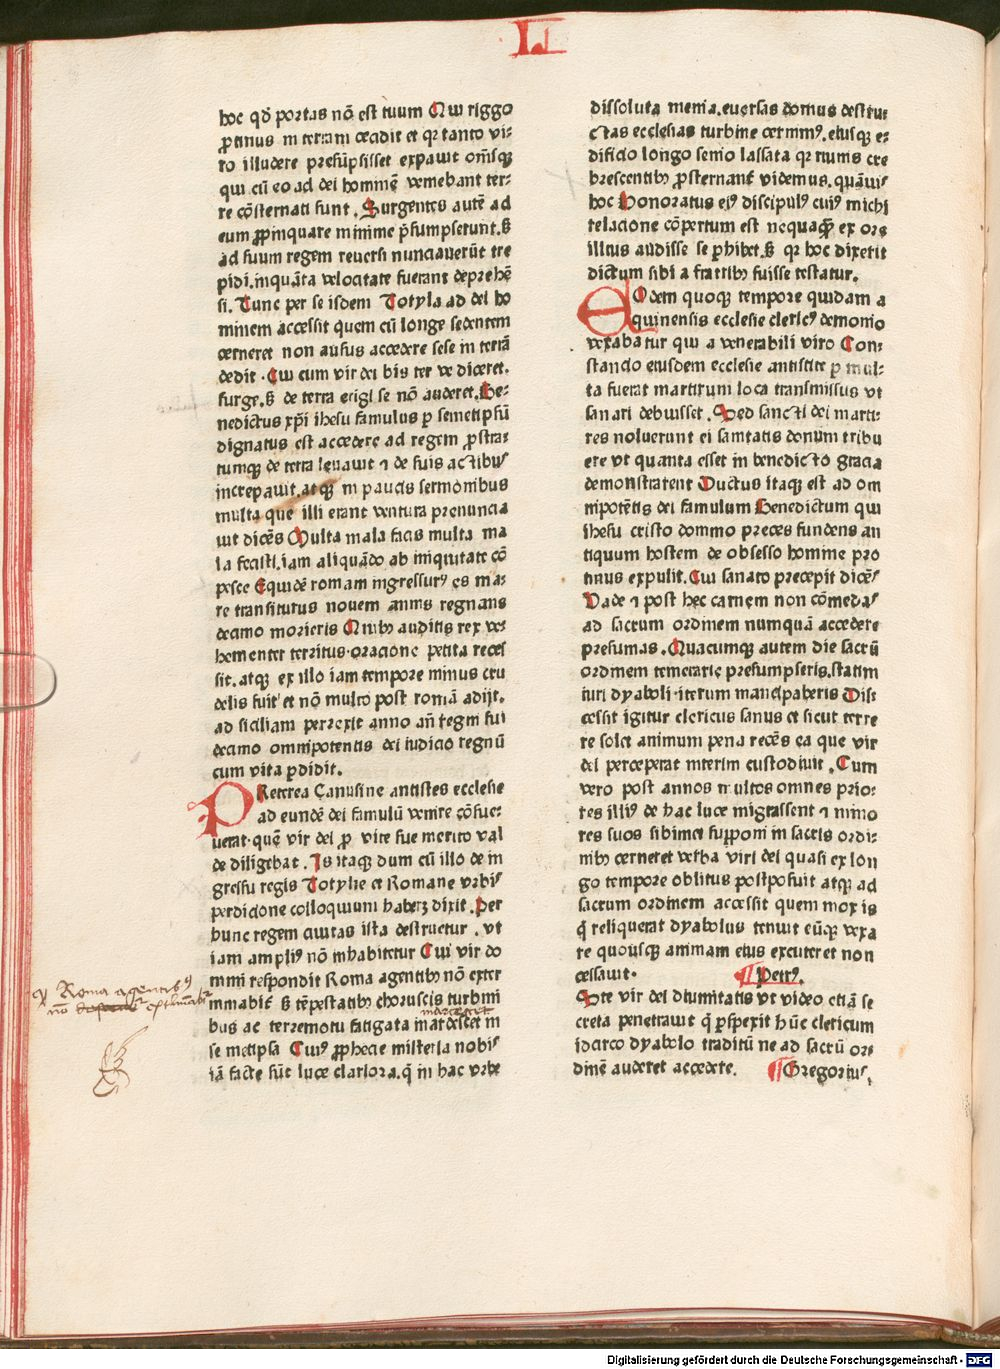 LI
hoc qd̛ portas nō est tuum Cui riggo
ꝓtinus in terram cecidit et qꝛ tanto vi⸗
ro illudere presūpsisset expauit om̄sqꝫ
qui cū eo ad dei hominē veniebant ter⸗
re cōsternati sunt . Surgentes autē ad
eum ꝓpinquare minime p̄sumpserunt. sꝫ
ad suum regem reuersi nunciauerūt tre
pidi.inquāta velocitate fuerant deprehē
si. Tunc per se isdem Totyla ad dei ho
minem accessit quem cū longe sedentem
cerneret non ausus accedere sese in terrā
dedit . Cui cum vir dei bis ter ve diceret.
surge. sꝫ de terra erigi se nō auderet. Be⸗
nedictus xp̄i ihesu famulus ꝑ semetipsū
dignatus est accedere ad regem ꝓstra⸗
tumqꝫ de terra leuauit ⁊ de suis actibuꝰ
increpauit.atqꝫ in paucis sermonibus
multa que illi erant ventura prenuncia
uit dicēs Multa mala facis multa ma
la fecisti.iam aliquādo ab iniquitate cō
pesce Equidē romam ingressurꝰ es ma⸗
re transiturus nouem annis regnans
decimo morieris Quibꝫ auditis rex ve⸗
hementer territus.oracione petita reces
sit. atqꝫ ex illo iam tempore minus cru
delis fuit et nō multo post romā adijt.
ad siciliam perrexit anno aūt regni sui
decimo omnipotentis dei iudicio regnū
cum vita ꝑdidit.
PReterea Canusine antistes ecclesie
ad eundē dei famulū venire cōsue⸗
uerat.quē vir dei ꝓ vite sue merito val
de diligebat . Is itaqꝫ dum cū illo de in
gressu regis Totylie et Romane vrbiꝰ
perdicione colloquium haberꝫ dixit . Per
hunc regem ciuitas ista destruetur . vt
iam ampliꝰ nō inhabitetur Cui vir do
mini respondit Roma agentibꝫ nō exter
minabit̄ sꝫ tēpestatibꝫ choruscis turbini
bus ac terremotu fatigata mardescet in
se metipsa Cuiꝰ ꝓphecie misteria nobiꝰ
iā facte sūt luce clariora.q̄ in hac vrbe
Roma agentibꝰ
nō
marcescet
dissoluta menia.euersas domus destru⸗
ctas ecclesias turbine cernimꝰ. eiusqꝫ e⸗
dificio longo senio lassata qꝛ ruinis cre
brescentibꝫ ꝓsternant̄ videmus. quāuiꝰ
hoc Honoratus eiꝰ discipulꝰ cuiꝰ michi
relacione cōpertum est nequaqꝫ ex ore
illius audisse se ꝑhibet. sꝫ qꝛ hoc dixerit
dictum sibi a fratribꝫ fuisse testatur.
EOdem quoqꝫ tempore quidam a
quinensis ecclesie clericꝰ demonio
vexabatur qui a venerabili viro Con⸗
stando eiusdem ecclesie antistite ꝑ mul⸗
ta fuerat martirum loca transmissus vt
sanari debuisset . Sed sancti dei marti⸗
res noluerunt ei sanitatis donum tribu
ere vt quanta esset in benedicto gracia
demonstrarent Ductus itaqꝫ est ad om
nipotētis dei famulum Benedictum qui
ihesu cristo domino preces fundens an
tiquum hostem de obsesso homine pro
tinus expulit. Cui sanato precepit dicēꝰ
Vade ⁊ post hec carnem non cōmedaꝰ
ad sacrum ordinem numquā accedere
presumas . Quacumqꝫ autem die sacrū
ordinem temerarie presumpseris.statim
iuri dyaboli iterum manciparberis Dis⸗
cessit igitur clericus sanus et sicut terre
re solet animum pena recēs ea que vir
dei perceperat interim custodiuit . Cum
vero post annos multos omnes prio⸗
res illiꝰ de hac luce migrassent ⁊ mino
res suos sibimet suꝑponi in sacris ordi⸗
nibꝫ cerneret verba viri dei quasi ex lon
go tempore oblitus postposuit atqꝫ ad
sacrum ordinem accessit quem mox is
q̄ reliquerat dyabolus tenuit eūqꝫ vexa
re quousqꝫ animam eius excuteret non
cessauit. ¶ Petrꝰ.
Iste vir dei diuinitatis vt video etiā se
creta penetrauit q̄ ꝑspexit hūc clericum
idarco dyabolo traditū ne ad sacrū or⸗
dinē auderet accedere. ¶ Gregoriuꝰ.
Digitalisierung gefördert durch die Deutsche Forschungsgemeinschaft - DFG